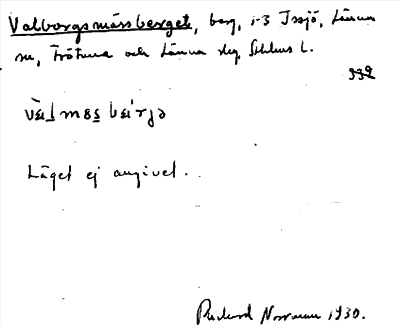 Valborgsmässberget, berg, i-3 Issjö, Länna
sn, Frötuna och Länna skg. Sthlms l.
våi̯lmɛs bei'rjə
Läget ej angivet.
Rickard Norrman 1930.